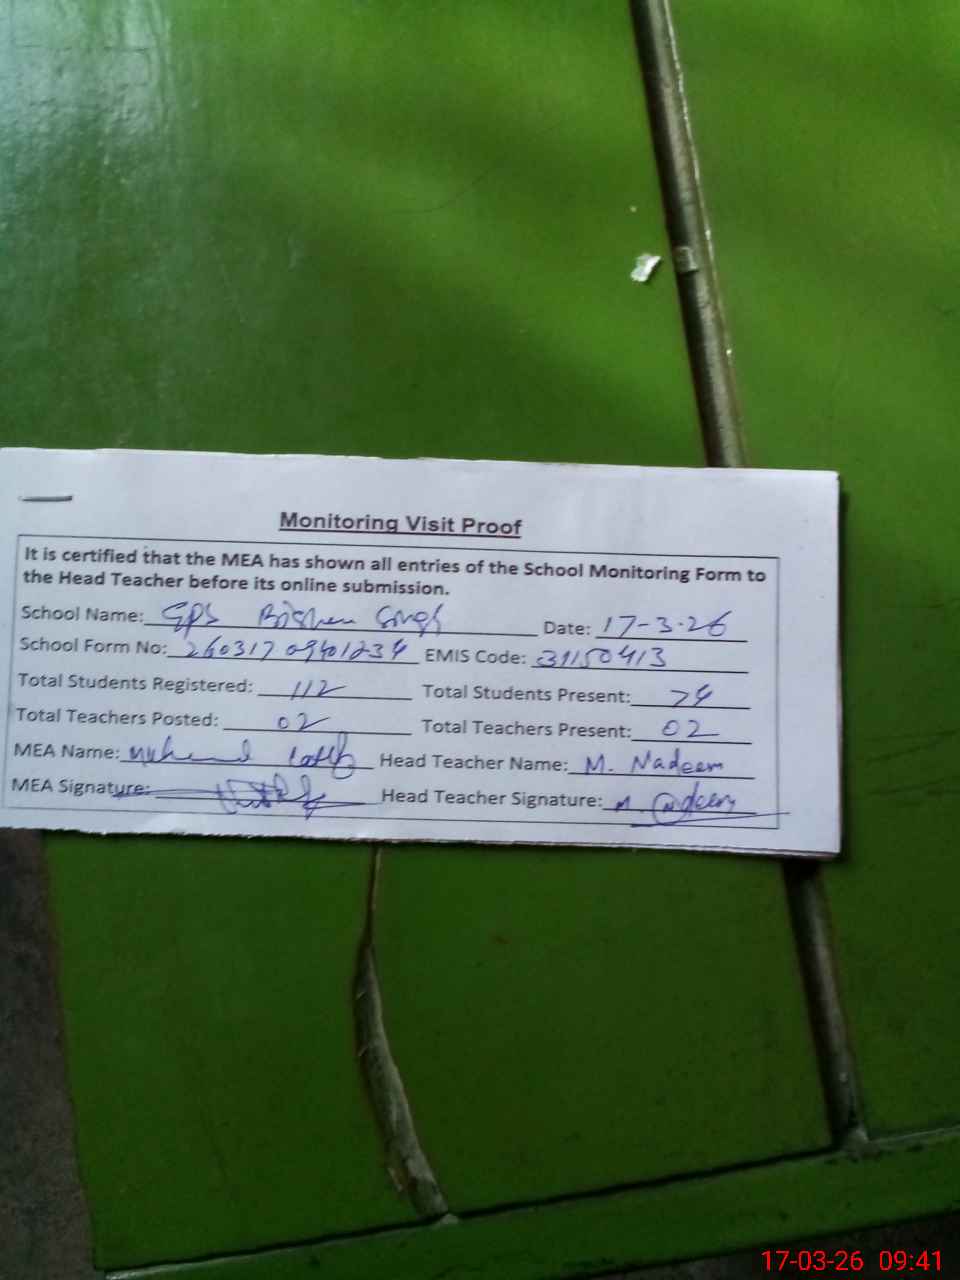 Monitoring Visit Proof
It is certified that the MEA has shown all entries of the School Monitoring Form to
the Head Teacher before its online submission.
School Name: GPS Bishen Singh Date: 17-3-26
School Form No: 260317 09401234 EMIS Code: 31150413
Total Students Registered: 112 Total Students Present: 74
Total Teachers Posted: 02 Total Teachers Present: 02
MEA Name: Head Teacher Name: M. Nadeem
MEA Signature: Head Teacher Signature: M. Nadeem
17-03-26 09:41